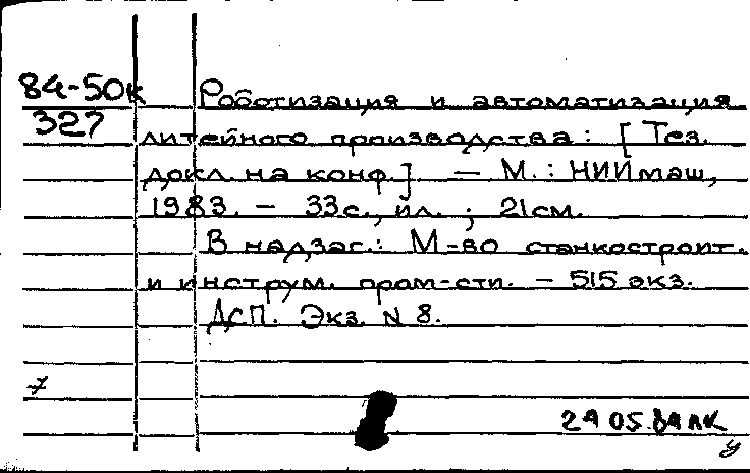 84-50к
327
Роботизация и автоматизация
литейного производства: [Тез.
докл. на конф.]. — М.: НИИмаш,
1983. – 33с., ил. ; 21см.
В надзаг.: М-во станкостроит.
и инструм. пром-сти. – 515 экз.
ДСП. Экз. N 8.
24 05.84 ЛК